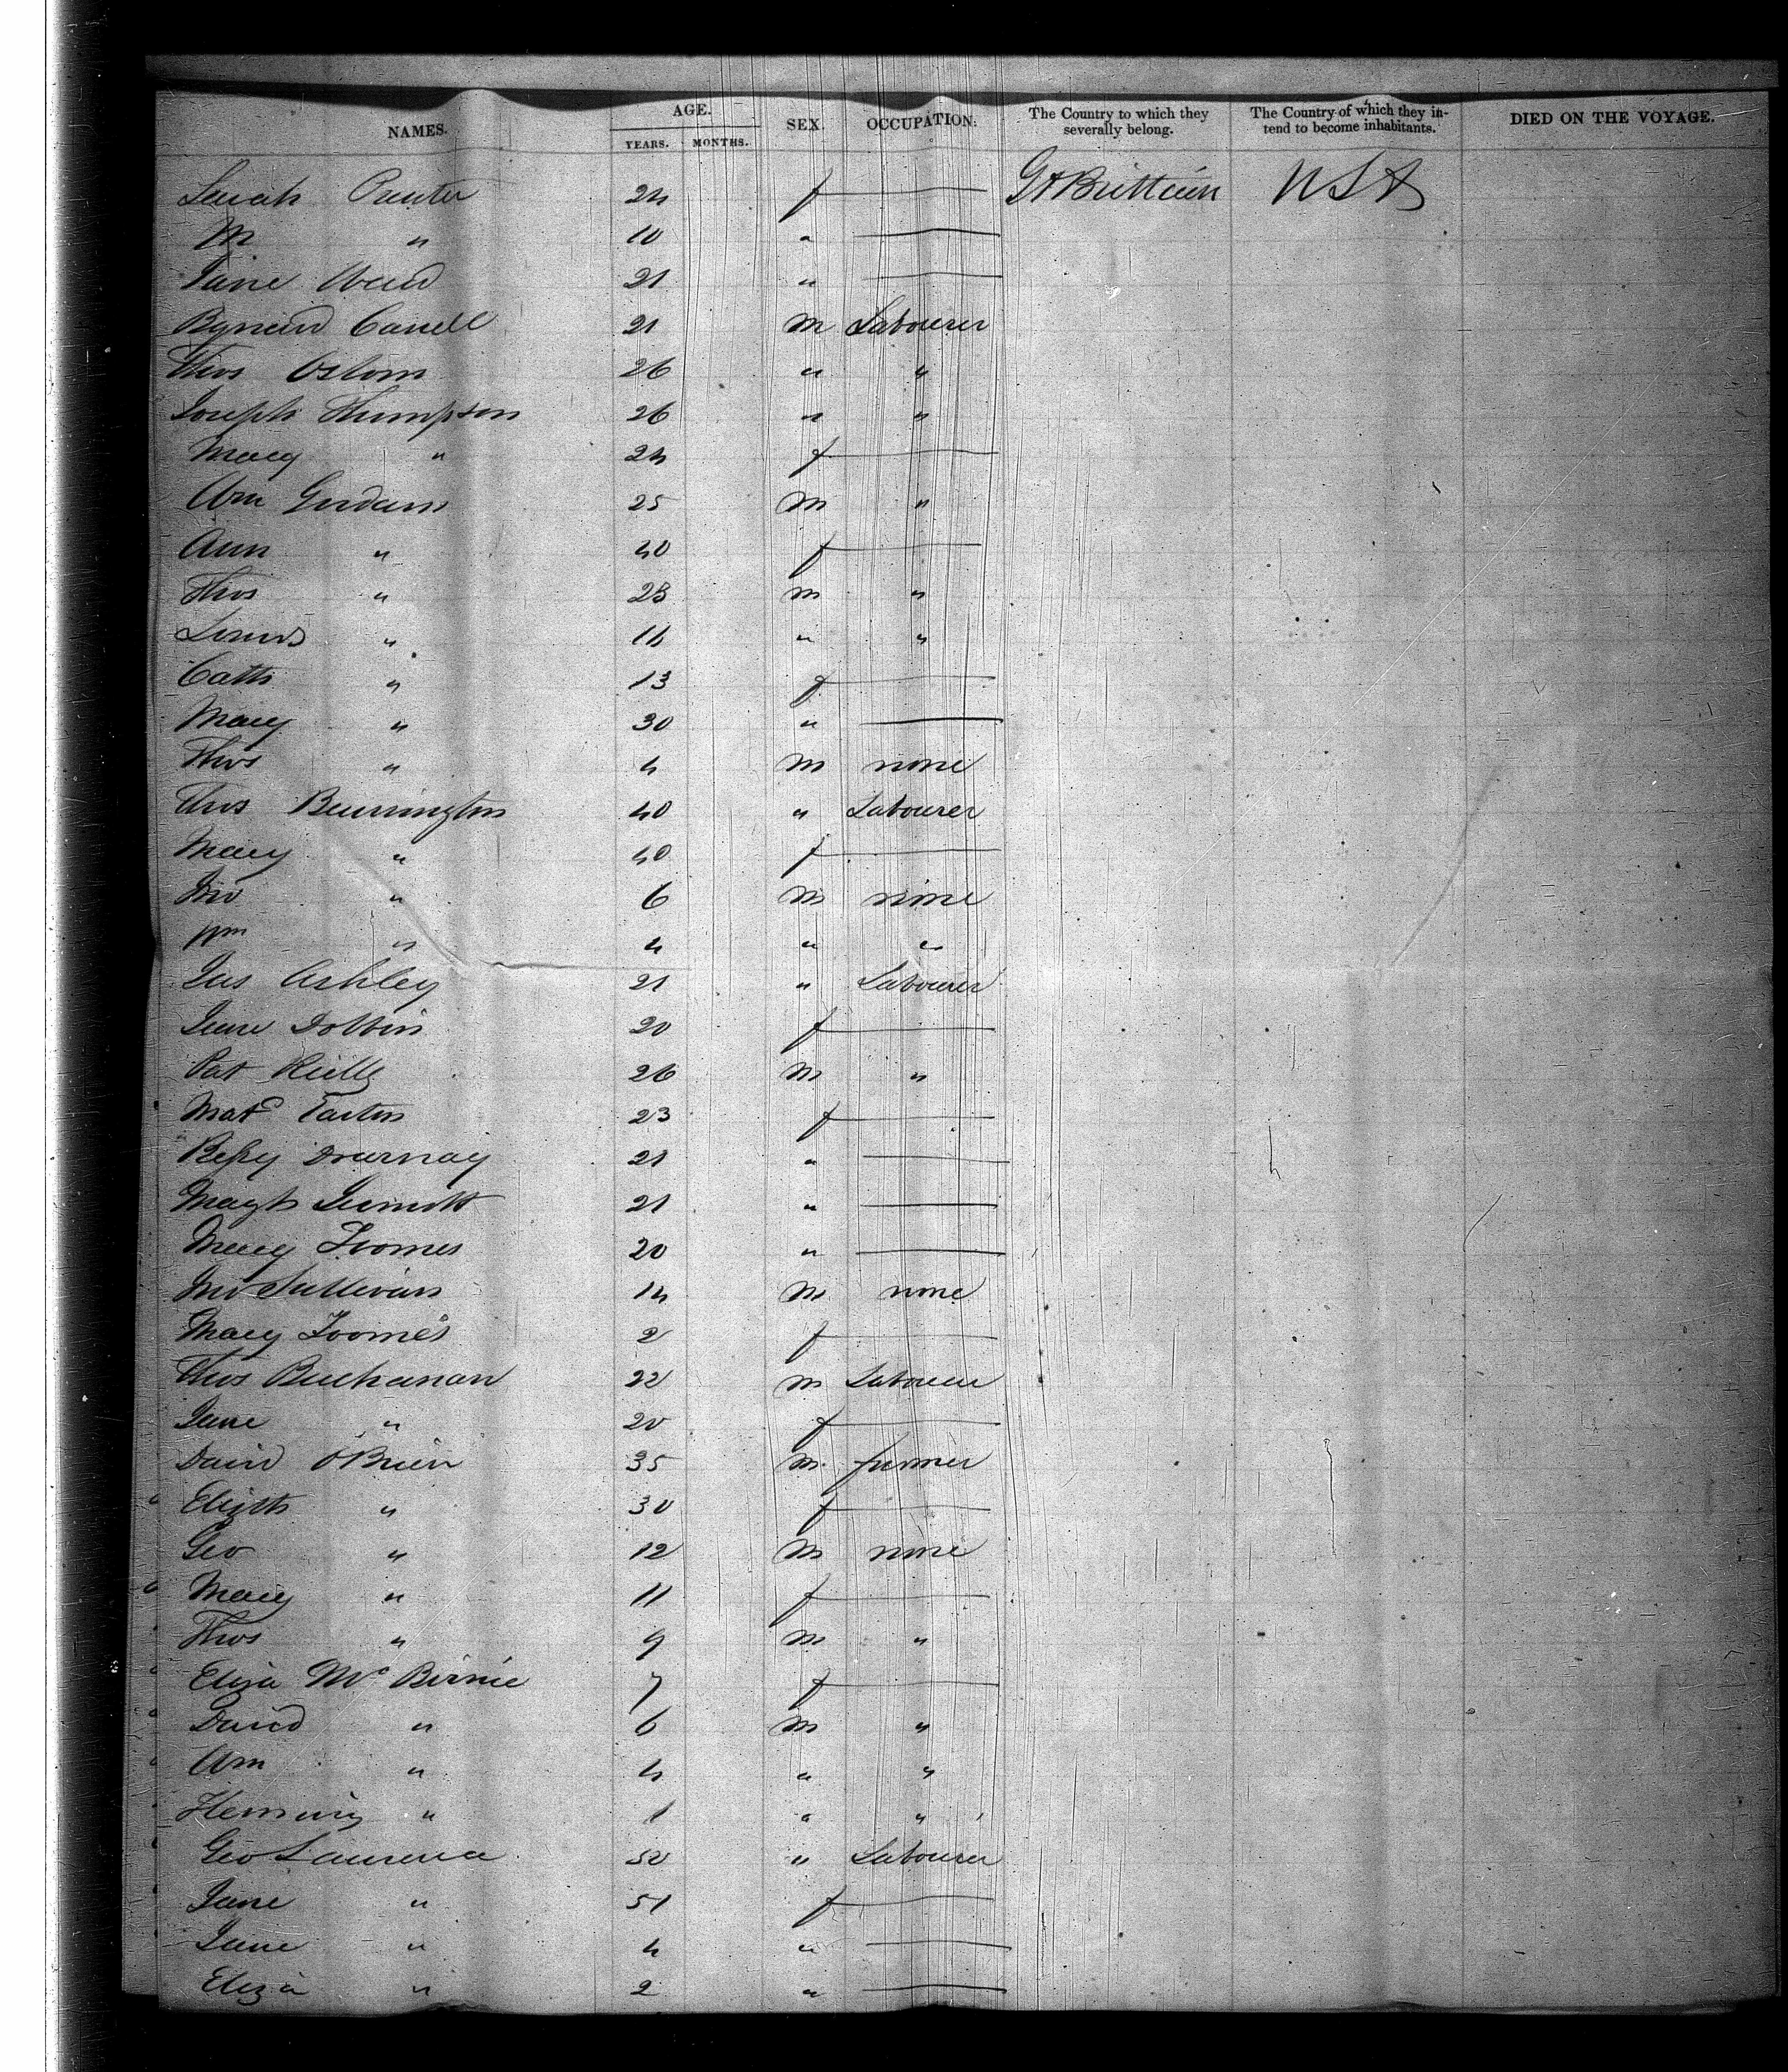 NAMES. AGE. YEARS. MONTHS. SEX. OCCUPATION. The Country to which they severally belong. The Country of which they intend to become inhabitants. DIED ON THE VOYAGE.
Sarah 24 f — Gt Brittain USA
M " 10 " —
Jane 21 " —
21 m Labourer
Thos Osborn 26 " "
Joseph Thompson 26 " "
Mary " 24 f —
Wm 25 m "
Ann " 40 f —
Thos " 23 m "
" " "
Cath " 13 f —
Mary " 30 " —
Thos " 4 m none
Thos 40 " Labourer
Mary " 40 f —
Jno " 6 m none
Wm " 4 " "
Jas Ashley 21 " Labourer
Jane Dobbin 20 f —
Pat Reilly 26 m "
23 f —
21 " —
Magt 21 " —
Mary Toomes 20 " —
Jno Sullivan 14 m none
Mary Toomes 2 f —
Thos Buchanan 22 m Labourer
Jane " 20 f —
David O'Brien 35 m farmer
Elizth " 30 f —
Geo " 12 m none
Mary " 11 f —
Thos " 9 m "
Eliza McBirnie 7 f —
David " 6 m "
Wm " 4 " "
Fleming " 1 " "
Geo 50 " Labourer
Jane " 51 f —
Jane " 4 " —
Eliza " 2 " —